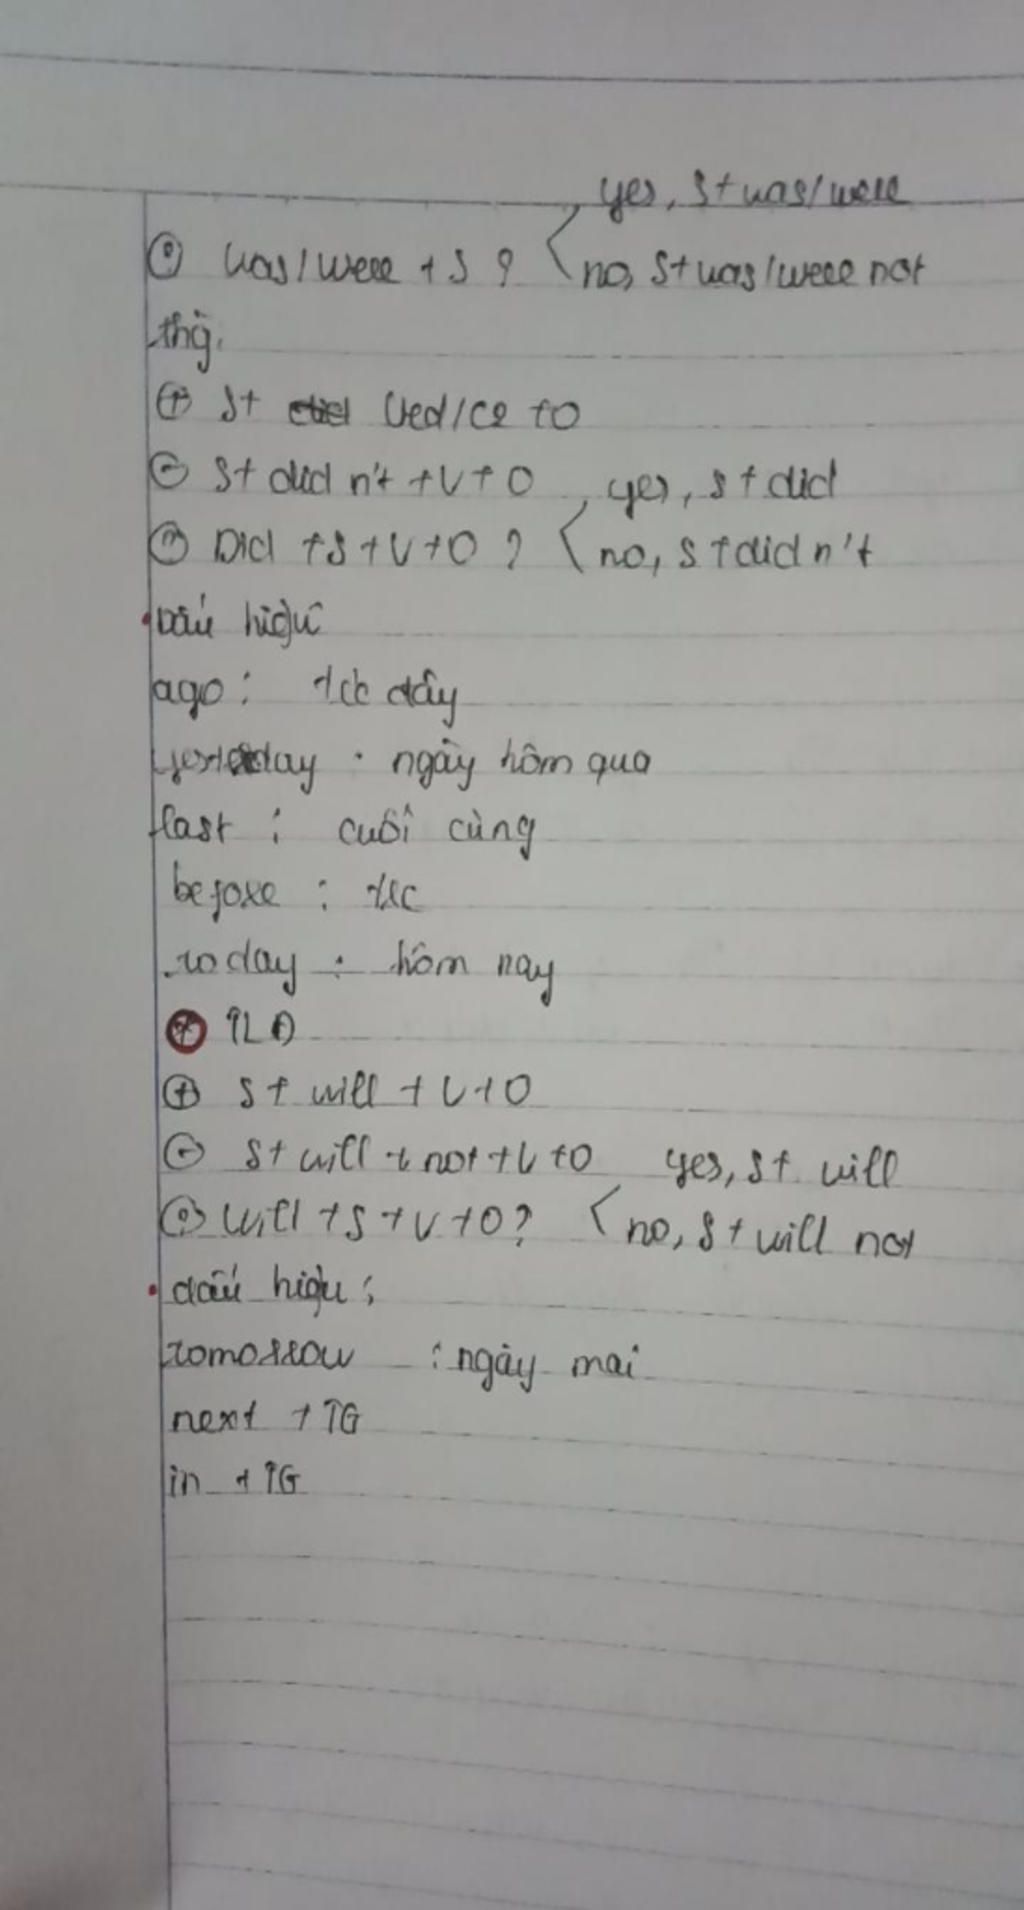 yes, S+ was/were
(?) was/were + S ? no, S+ was/were not
(+) S+ Ved/C2 + O
(-) S+ didn't + V + O yes, S + did
(?) Did + S + V + O ? no, S + didn't
dấu hiệu
ago : đây
yesterday : ngày hôm qua
last : cuối cùng
before :
today : hôm nay
(*) TLĐ
(+) S + will + V + O
(-) S+ will + not + V + O yes, S+ will
(?) will + S + V + O ? no, S + will not
dấu hiệu :
tomorrow : ngày mai
next + TG
in + TG